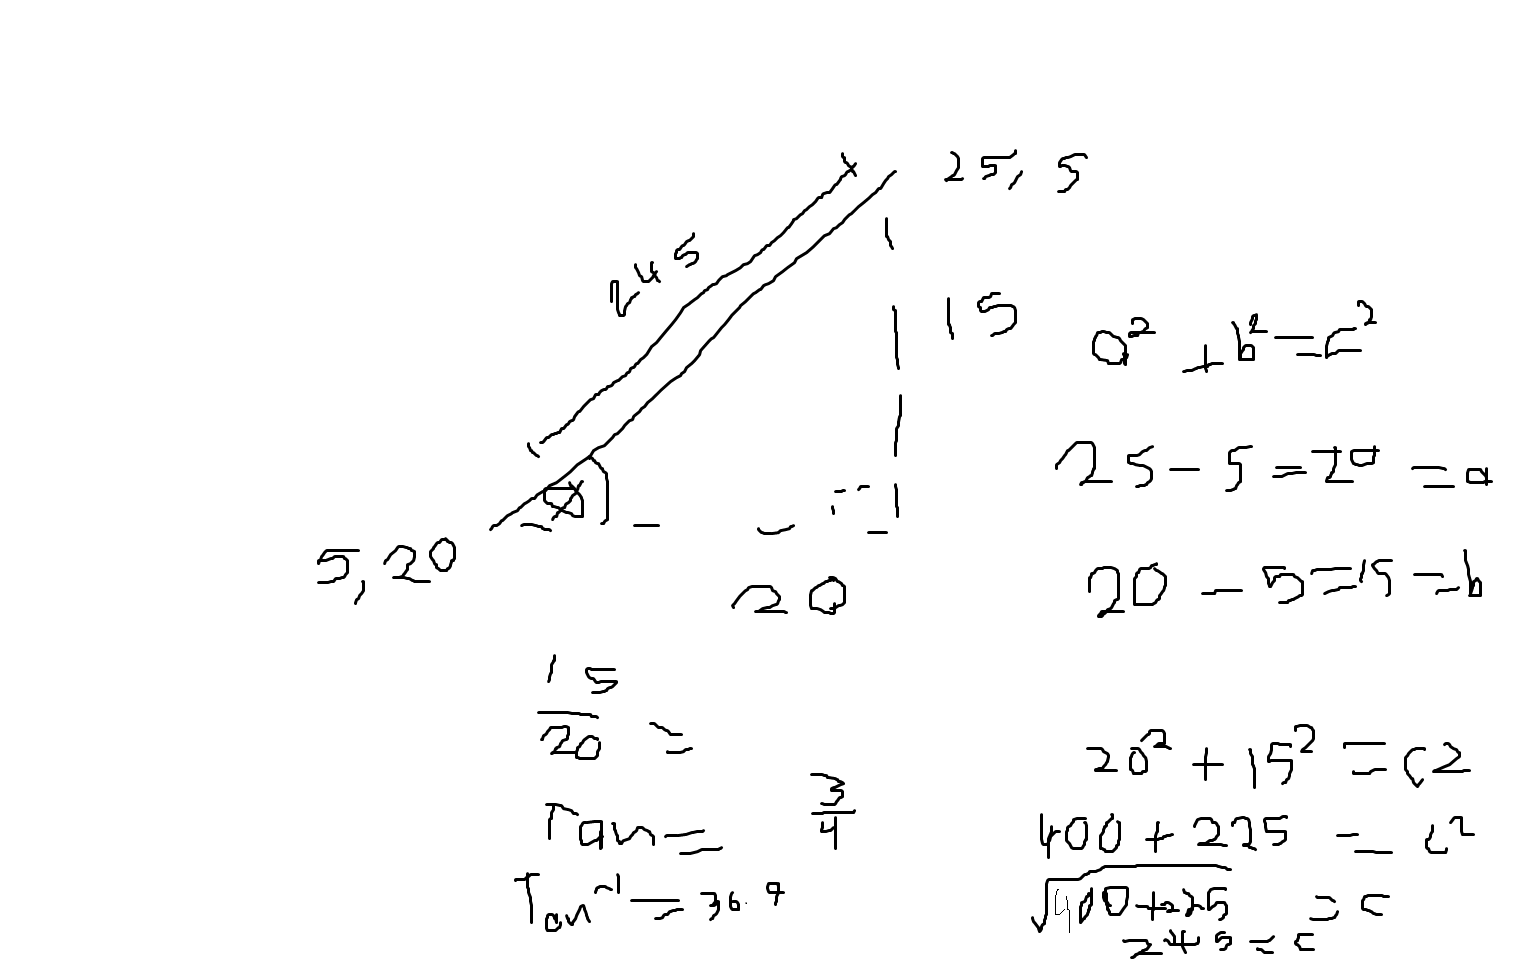 25, 5
245
15
a² + b² = c²
25 - 5 = 20 = a
5, 20
20
20 - 5 = 15 = b
15
20 =
3
4
Tan =
Tan⁻¹ = 36.9
20² + 15² = c2
400 + 225 = c²
√400+225 = c
245 = c